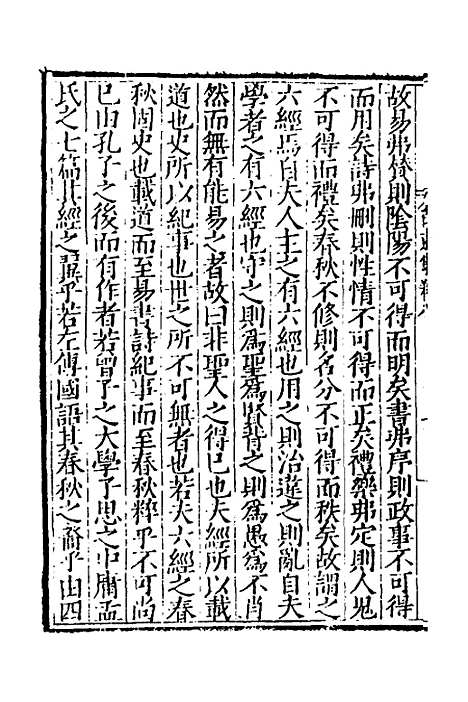 故易弗贊則陰陽不可得而明矣書弗序則政事不可得
而用矣詩弗刪則性情不可得而正矣禮樂弗定則人鬼
不可得而禮矣春秋不修則名分不可得而秩矣故謂之
六經焉自夫人主之有六經也用之則治違之則亂自夫
學者之有六經也守之則為聖為賢背之則為愚為不肖
然而無有能易之者故曰非聖人之得已也夫經所以載
道也史所以紀事也世之所不可無者也若夫六經之春
秋固史也載道而至易書詩紀事而至春秋粹乎不可尚
已由孔子之後而有作者若曾子之大學子思之中庸孟
氏之七篇其經之翼乎若左傳國語其春秋之裔乎由四